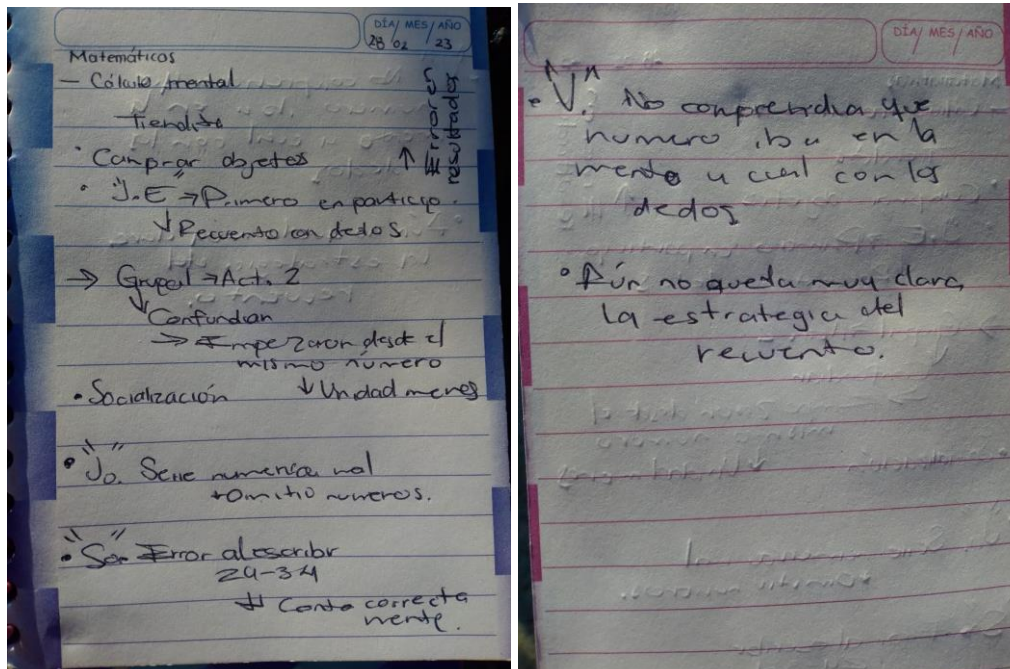 DÍA/ MES/ AÑO
28 02 23
Matemáticas
— Cálculo mental
Tiendita
• Comprar objetos
↑ Error en
resultados
• "J.E" → Primero en participo.
↓ Recuento con dedos.
→ Grupal → Act. 2
↓ Confundian
→ Empezaron desde el
mismo número
• Socialización ↓ Unidad menos
• "Jo. Serie numerica mal
+ Omitio numeros.
• "Se" Error al escribir
24-34
↓ Conto correcta
mente.
DÍA/ MES/ AÑO
• "V." No comprendia que
numero iba en la
mente y cual con los
dedos
• Aún no queda muy clara
la estrategia del
recuento.